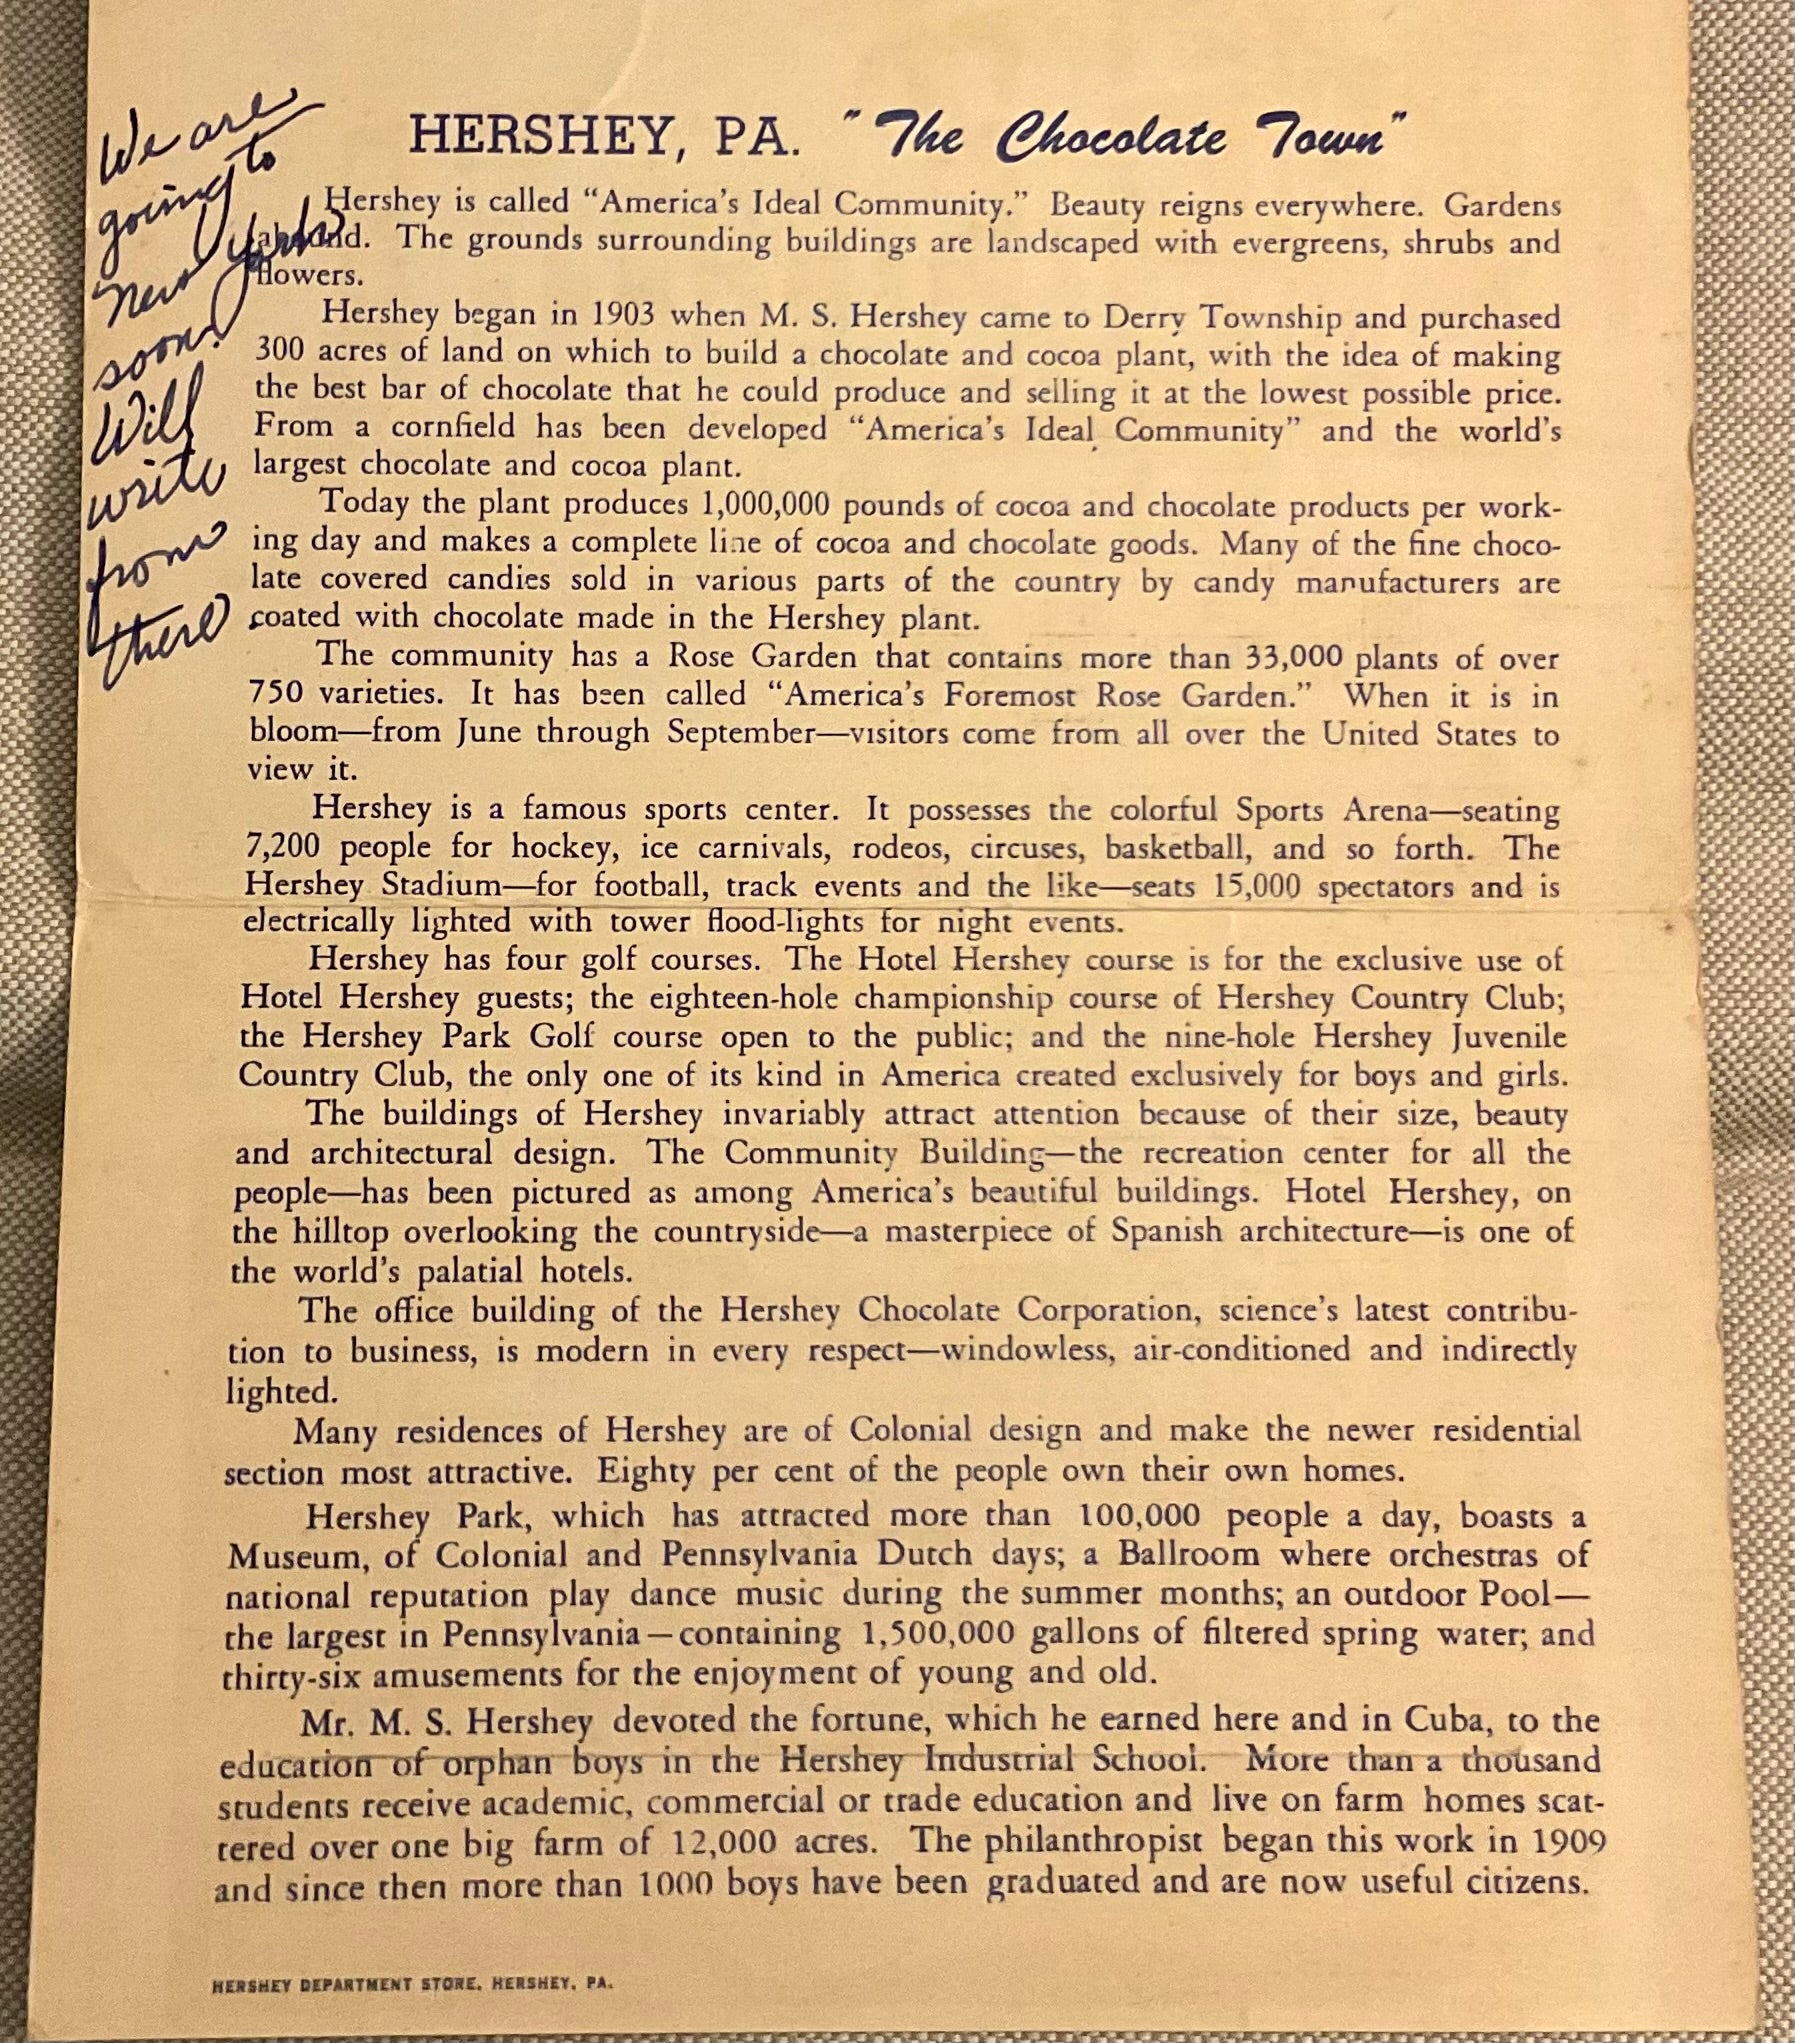 We are
going to
New York
soon!
Will
write
from
there
HERSHEY, PA. "The Chocolate Town"
Hershey is called “America’s Ideal Community.” Beauty reigns everywhere. Gardens
abound. The grounds surrounding buildings are landscaped with evergreens, shrubs and
flowers.
Hershey began in 1903 when M. S. Hershey came to Derry Township and purchased
300 acres of land on which to build a chocolate and cocoa plant, with the idea of making
the best bar of chocolate that he could produce and selling it at the lowest possible price.
From a cornfield has been developed “America’s Ideal Community” and the world’s
largest chocolate and cocoa plant.
Today the plant produces 1,000,000 pounds of cocoa and chocolate products per work-
ing day and makes a complete line of cocoa and chocolate goods. Many of the fine choco-
late covered candies sold in various parts of the country by candy manufacturers are
coated with chocolate made in the Hershey plant.
The community has a Rose Garden that contains more than 33,000 plants of over
750 varieties. It has been called “America’s Foremost Rose Garden.” When it is in
bloom—from June through September—visitors come from all over the United States to
view it.
Hershey is a famous sports center. It possesses the colorful Sports Arena—seating
7,200 people for hockey, ice carnivals, rodeos, circuses, basketball, and so forth. The
Hershey Stadium—for football, track events and the like—seats 15,000 spectators and is
electrically lighted with tower flood-lights for night events.
Hershey has four golf courses. The Hotel Hershey course is for the exclusive use of
Hotel Hershey guests; the eighteen-hole championship course of Hershey Country Club;
the Hershey Park Golf course open to the public; and the nine-hole Hershey Juvenile
Country Club, the only one of its kind in America created exclusively for boys and girls.
The buildings of Hershey invariably attract attention because of their size, beauty
and architectural design. The Community Building—the recreation center for all the
people—has been pictured as among America’s beautiful buildings. Hotel Hershey, on
the hilltop overlooking the countryside—a masterpiece of Spanish architecture—is one of
the world’s palatial hotels.
The office building of the Hershey Chocolate Corporation, science’s latest contribu-
tion to business, is modern in every respect—windowless, air-conditioned and indirectly
lighted.
Many residences of Hershey are of Colonial design and make the newer residential
section most attractive. Eighty per cent of the people own their own homes.
Hershey Park, which has attracted more than 100,000 people a day, boasts a
Museum, of Colonial and Pennsylvania Dutch days; a Ballroom where orchestras of
national reputation play dance music during the summer months; an outdoor Pool—
the largest in Pennsylvania—containing 1,500,000 gallons of filtered spring water; and
thirty-six amusements for the enjoyment of young and old.
Mr. M. S. Hershey devoted the fortune, which he earned here and in Cuba, to the
education of orphan boys in the Hershey Industrial School. More than a thousand
students receive academic, commercial or trade education and live on farm homes scat-
tered over one big farm of 12,000 acres. The philanthropist began this work in 1909
and since then more than 1000 boys have been graduated and are now useful citizens.
HERSHEY DEPARTMENT STORE, HERSHEY, PA.